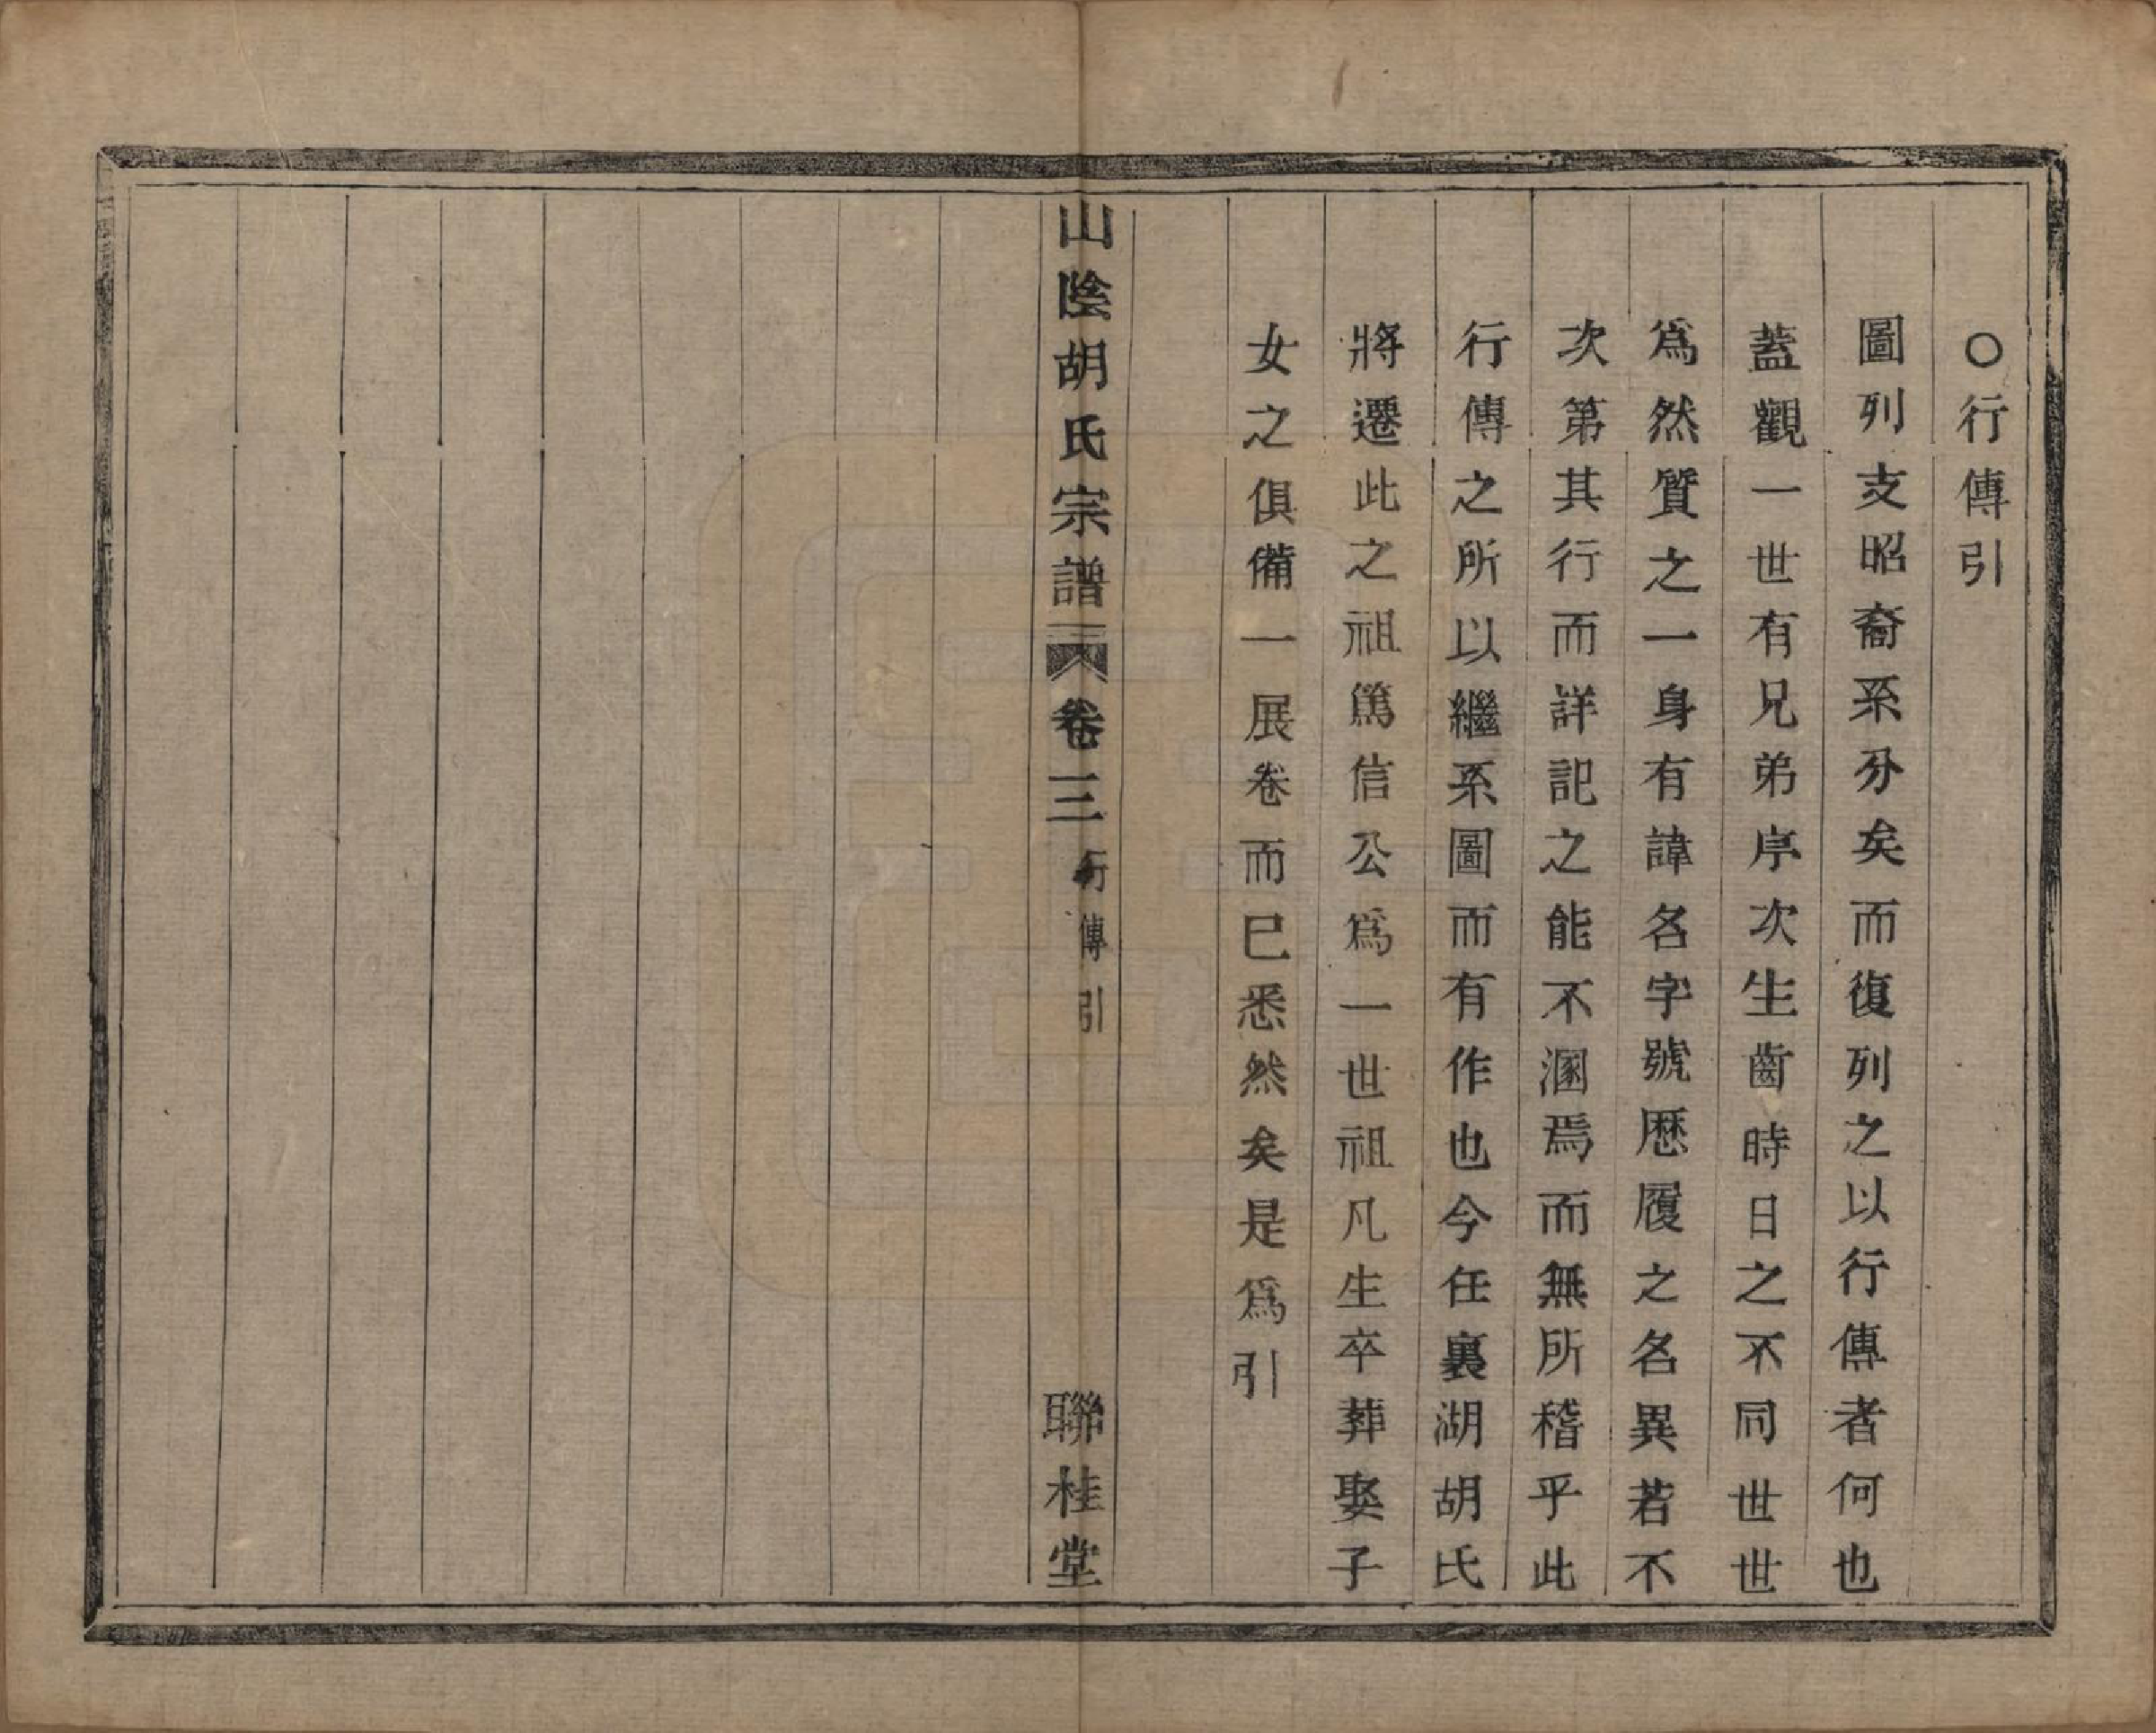 〇行傳引
圖列支昭裔系分矣而復列之以行傳者何也
蓋觀一世有兄弟序次生齒時日之不同世世
爲然質之一身有諱名字號歷履之名異若不
次第其行而詳記之能不溷焉而無所稽乎此
行傳之所以繼系圖而有作也今任裏湖胡氏
將遷此之祖篤信公爲一世祖凡生卒葬娶子
女之俱備一展卷而巳悉然矣是爲引
山陰胡氏宗譜 卷三 行傳引 聯桂堂